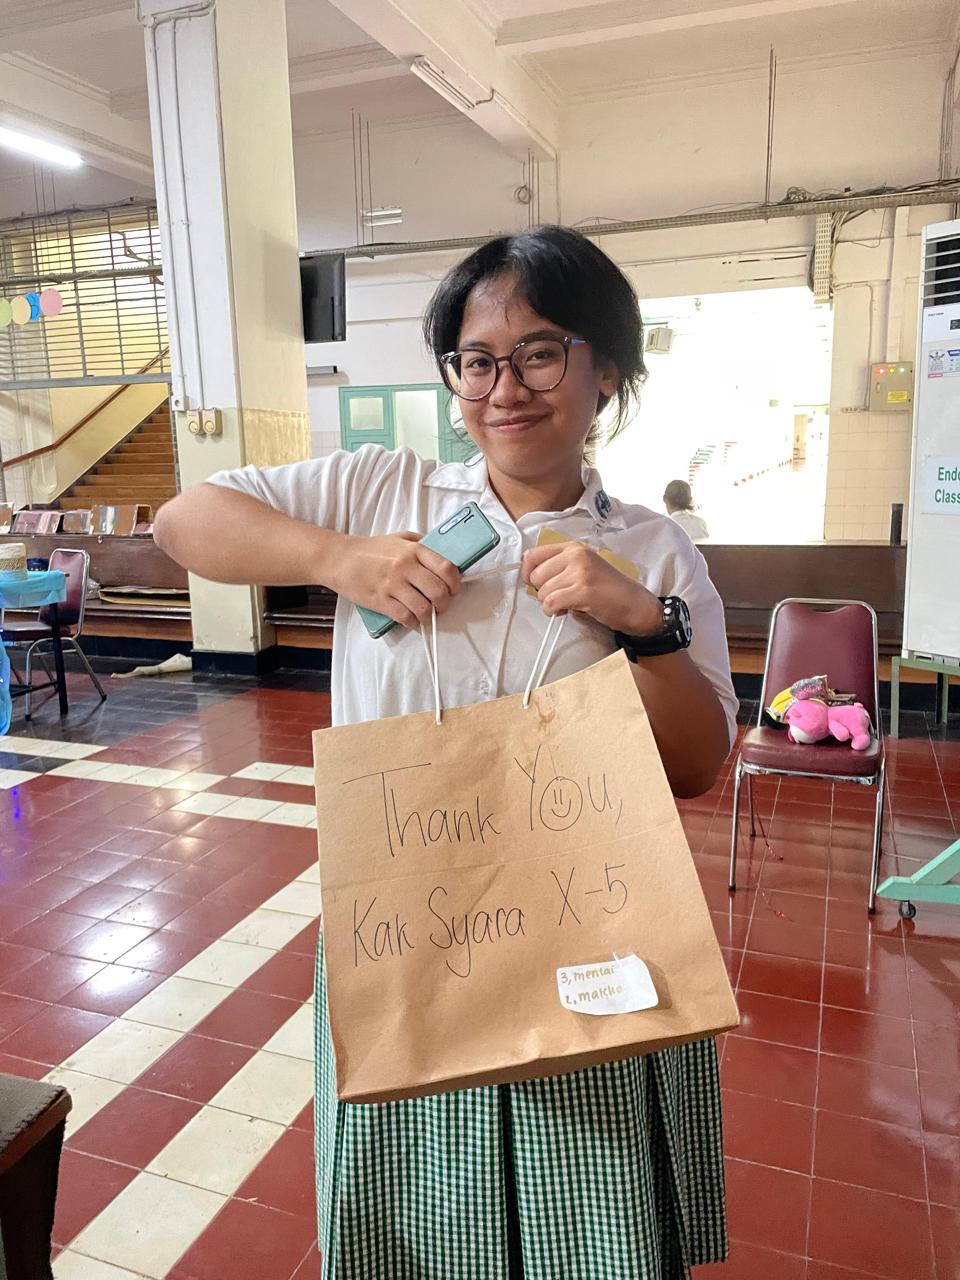 Thank You,
Kak Syara X-5
3, mentai
2, matcha
Endo
Class